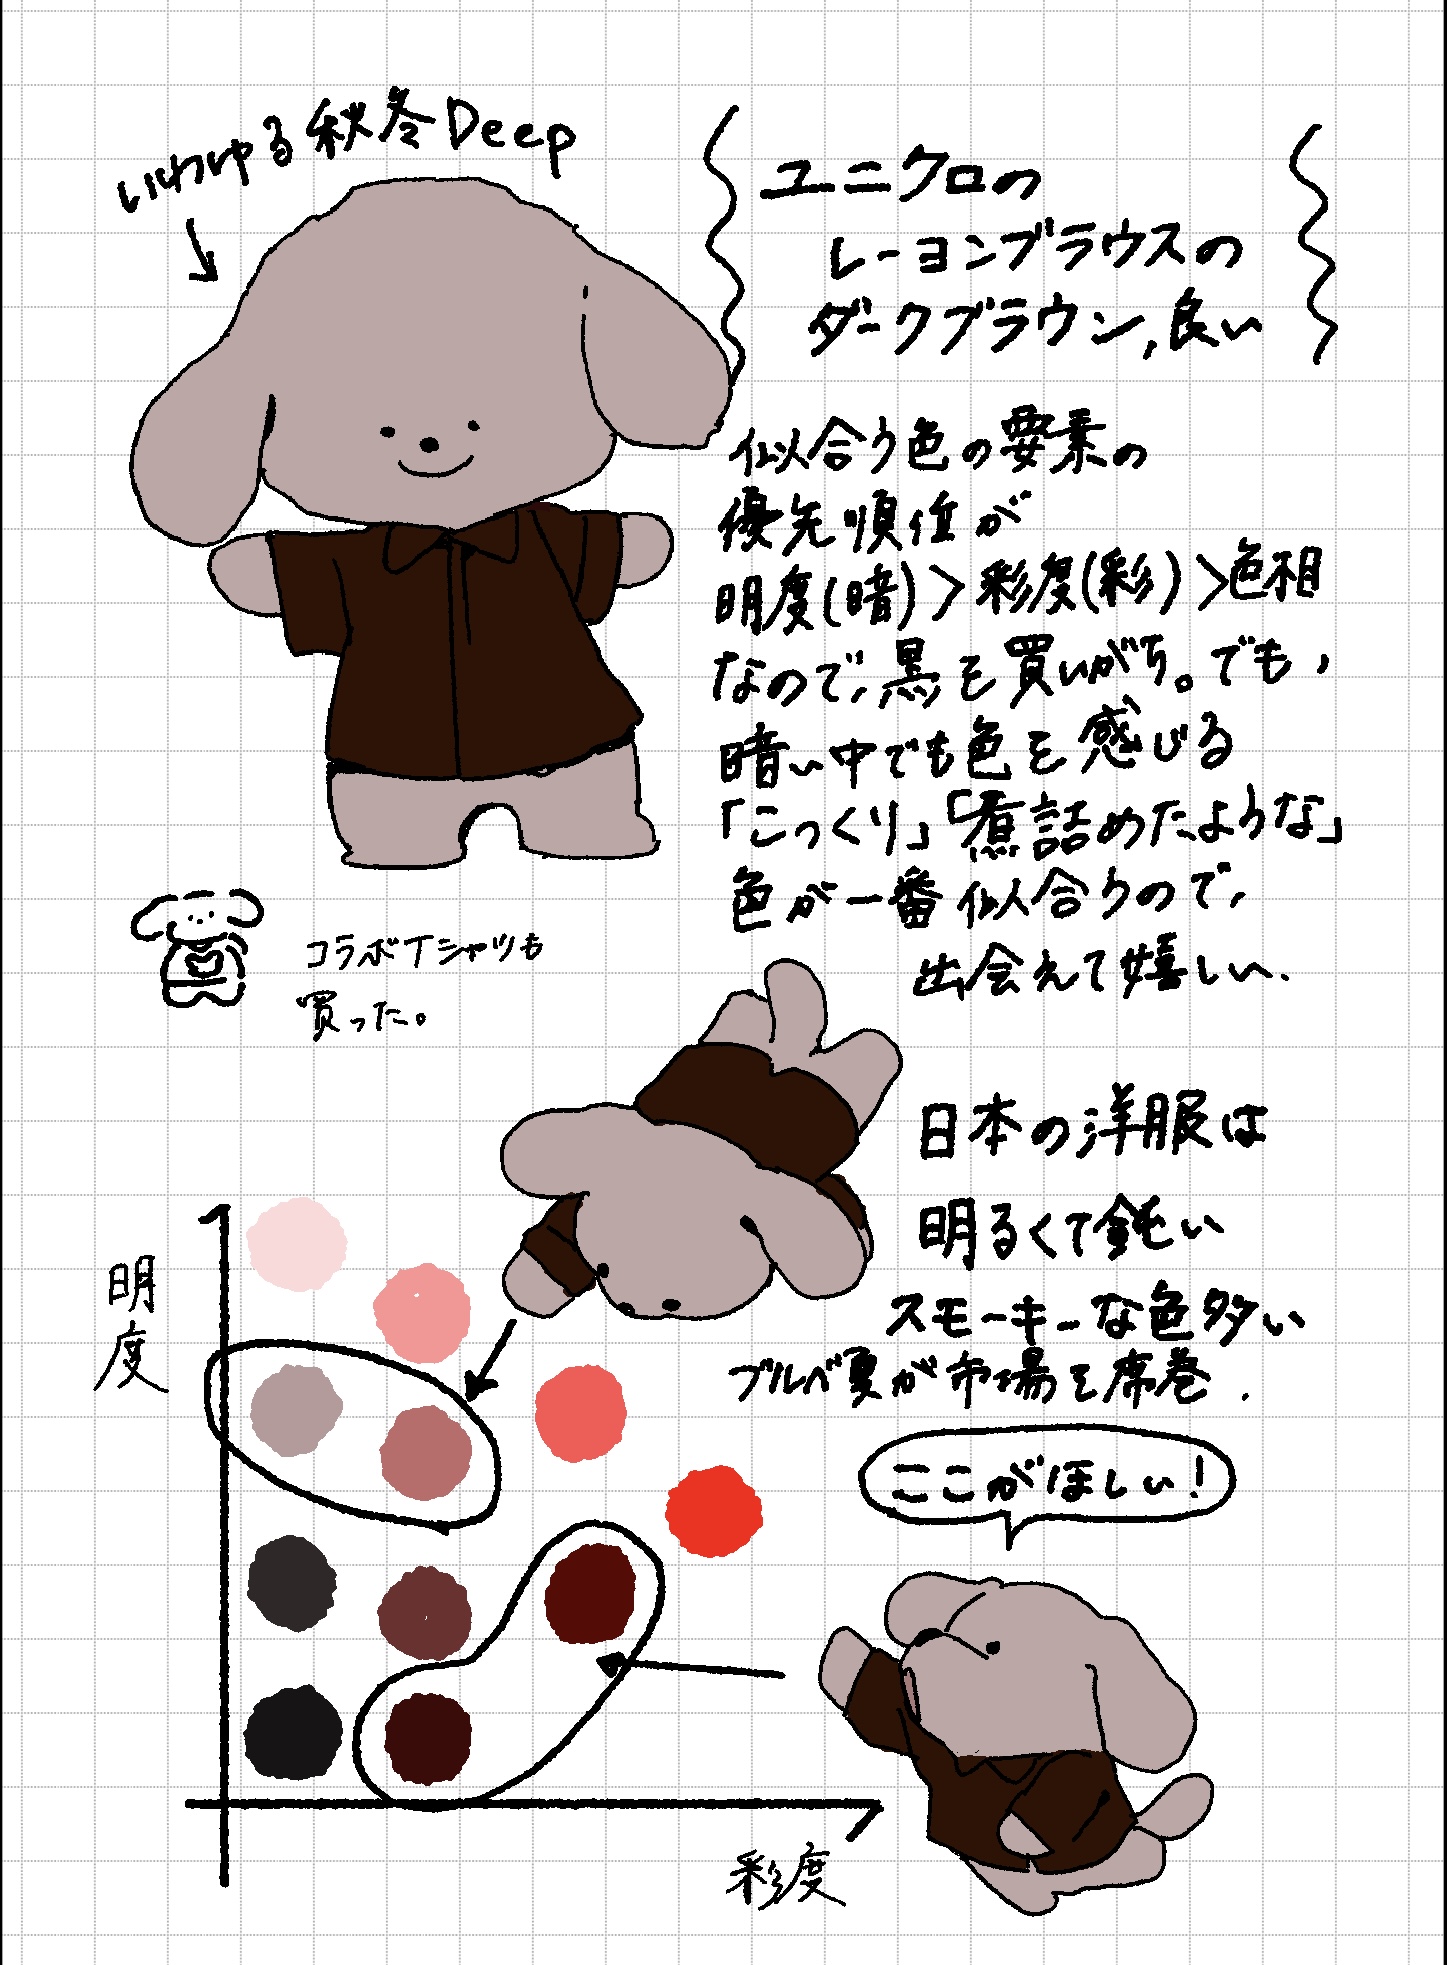 いわゆる秋冬Deep
ユニクロの
レーヨンブラウスの
ダークブラウン,良い
似合う色の要素の
優先順位が
明度(暗)>彩度(彩)>色相
なので、黒を買いがち。でも、
暗い中でも色を感じる
「こっくり」「煮詰めたような」
色が一番似合うので、
出会えて嬉しい.
コラボTシャツも
買った。
日本の洋服は
明るくて鈍い
スモーキーな色多い
ブルベ夏が市場を席巻.
明度
ここがほしい!
彩度